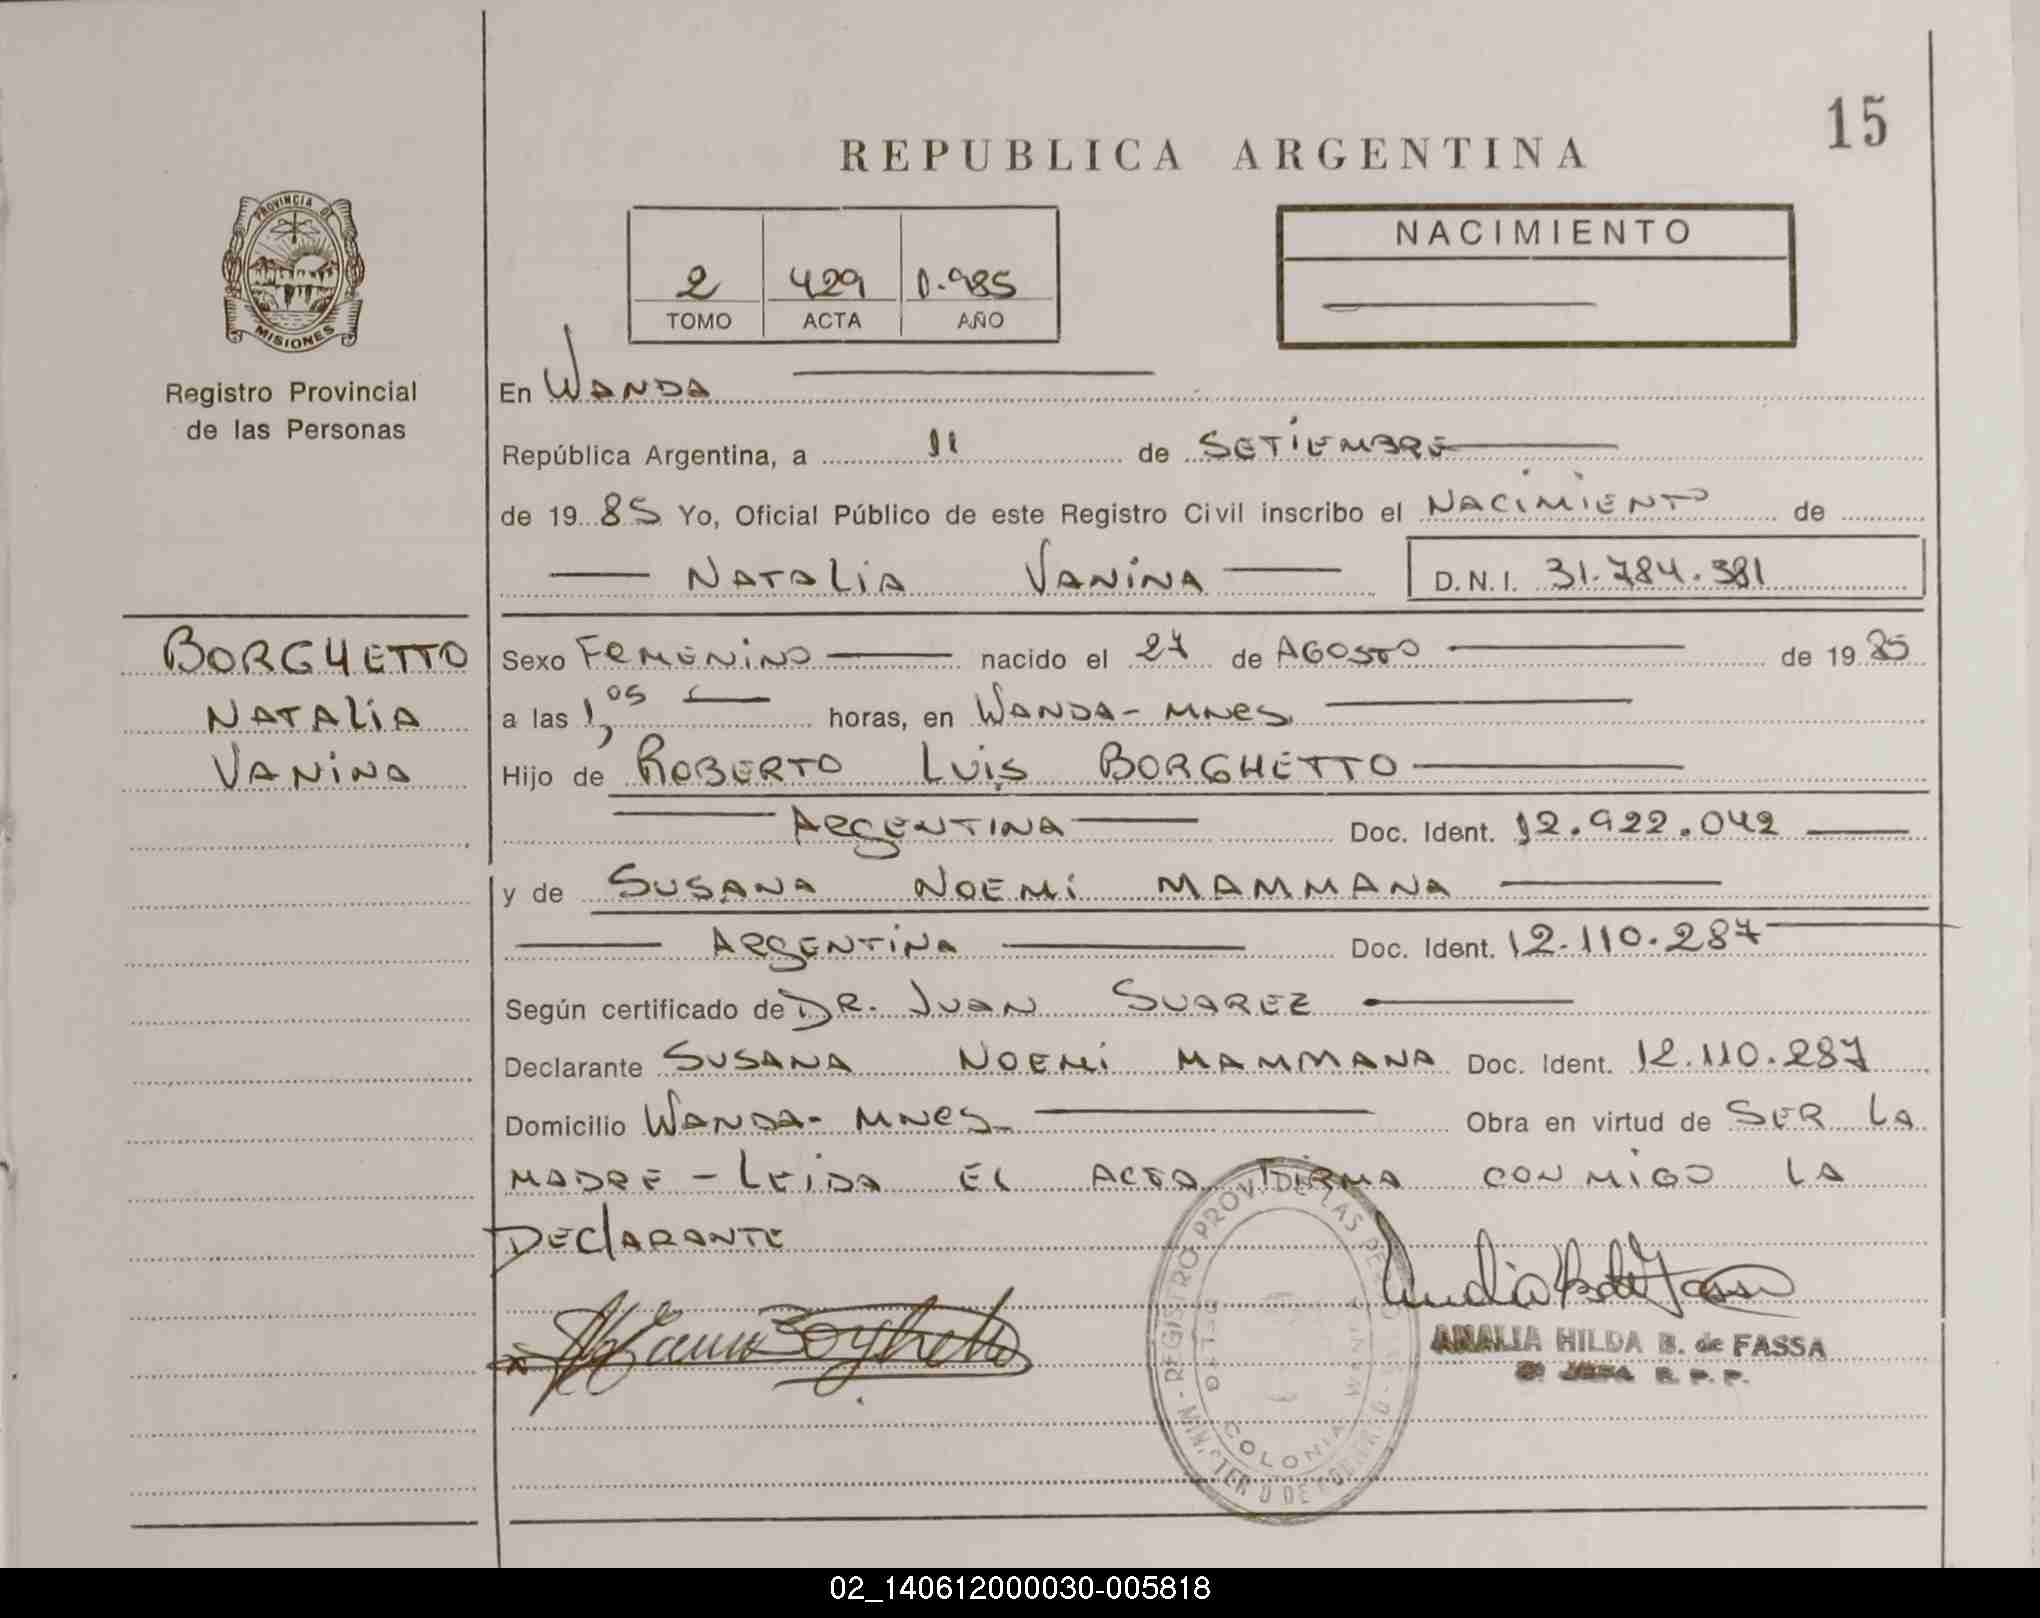 15
REPUBLICA ARGENTINA
PROVINCIA DE
MISIONES
Registro Provincial
de las Personas
NACIMIENTO
2 429 1.985
TOMO ACTA AÑO
En WANDA
República Argentina, a 11 de SETIEMBRE
de 1985 Yo, Oficial Público de este Registro Civil inscribo el NACIMIENTO de
NATALIA VANINA D.N.I. 31.784.381
BORGHETTO
NATALIA
VANINA
Sexo FEMENINO nacido el 27 de AGOSTO de 1985
a las 1,05 horas, en WANDA - MNES
Hijo de ROBERTO LUIS BORGHETTO
ARGENTINA Doc. Ident. 12.922.042
y de SUSANA NOEMI MAMMANA
ARGENTINA Doc. Ident. 12.110.287
Según certificado de DR. JUAN SUAREZ
Declarante SUSANA NOEMI MAMMANA Doc. Ident. 12.110.287
Domicilio WANDA - MNES Obra en virtud de SER LA
MADRE - LEIDA EL ACTA FIRMA CONMIGO LA
DECLARANTE
REGISTRO PROV. DE LAS
COLONIA WANDA
AMALIA HILDA B. de FASSA
R. P. P.
02_140612000030-005818